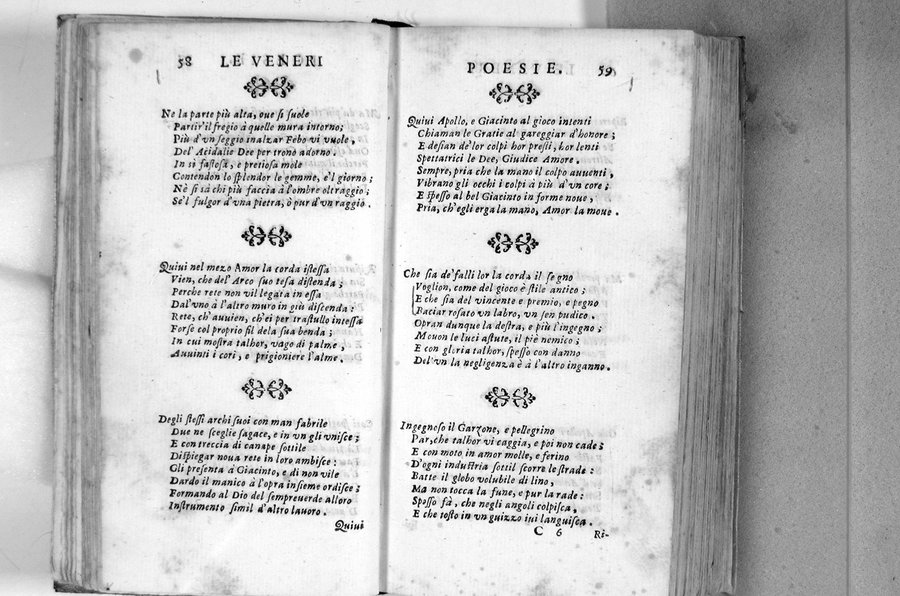 58 LE VENERI
Ne la parte più alta, oue si suole
Partir'il fregio à quelle mura intorno;
Più d'vn seggio inalzar Febo vi vuole,
De l'Acidalie Dee per trono adorno.
In sì fastosa, e pretiosa mole
Contendon lo splendor le gemme, e'l giorno;
Nè si sà chi più faccia à l'ombre oltraggio;
Se'l fulgor d'vna pietra, ò pur d'vn raggio.
Quiui nel mezo Amor la corda istessa
Vien, che de l'Arco suo tesa distenda;
Perche rete non vil legata in essa
Dal'vno à l'altro muro in giù discenda:
Rete, ch'auuien, ch'ei per trastullo intessa
Forse col proprio fil dela sua benda;
In cui mostra talhor, vago di palme,
Auuinti i cori, e prigioniere l'alme.
Degli stessi archi suoi con man fabrile
Due ne sceglie sagace, e in vn gli vnisce;
E con treccia di canape sottile
Dispiegar noua rete in loro ambisce:
Gli presenta à Giacinto, e di non vile
Dardo il manico à l'opra insieme ordisce;
Formando al Dio del sempreuerde alloro
Instrumento simil d'altro lauoro.
Quiui
POESIE. 59
Quiui Apollo, e Giacinto al gioco intenti
Chiaman le Gratie al gareggiar d'honore;
E desian de'lor colpi hor presti, hor lenti
Spettatrici le Dee, Giudice Amore.
Sempre, pria che la mano il colpo auuenti,
Vibrano gli occhi i colpi à più d'vn core;
E spesso al bel Giacinto in forme noue,
Pria, ch'egli erga la mano, Amor la moue.
Che sia de'falli lor la corda il segno
Voglion, come del gioco è stile antico;
E che sia del vincente e premio, e pegno
Baciar rosato vn labro, vn sen pudico.
Opran dunque la destra, e più l'ingegno;
Mouon le luci astute, il piè nemico;
E con gloria talhor, spesso con danno
Del'vn la negligenza è à l'altro inganno.
Ingegnoso il Garzone, e pellegrino
Par, che talhor vi caggia, e poi non cade;
E con moto in amor molle, e ferino
D'ogni industria sottil scorre le strade:
Batte il globo volubile di lino,
Ma non tocca la fune, e pur la rade:
Spesso fà, che negli angoli colpisca,
E che tosto in vn guizzo iui languisca.
C 6 Ri-